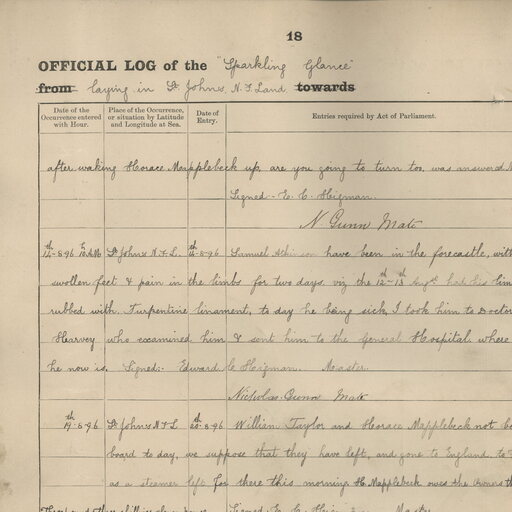 18
OFFICIAL LOG of the "Sparkling Glance"
from laying in St Johns N. F. Land towards
Date of the Occurrence entered with Hour.
Place of the Occurrence, or situation by Latitude and Longitude at Sea.
Date of Entry.
Entries required by Act of Parliament.
after waking Horace Mapplebeck up, are you going to turn too, was answered
Signed - E. C. Heigman.
N Gunn Mate
14th-8-96 10 AM St Johns N. F. L. 14th-8-96 Samuel have been in the forecastle, with
swollen feet & pain in the limbs for two days viz the 12th-13th Augst had his lim
rubbed with Turpentine linament, to day he being sick, I took him to Doctor
Hearvey who examined him & sent him to the general Hospital. where
he now is. Signed:- Edward C Heigman. Master.
Nicholas Gunn Mate
19th-8-96 St Johns N F L 20th-8-96 William Taylor and Horace Mapplebeck not
board to day, we suppose that they have left, and gone to England, to
as a steamer left for there this morning H. Mapplebeck owes the Owners
Signed E. C. Master